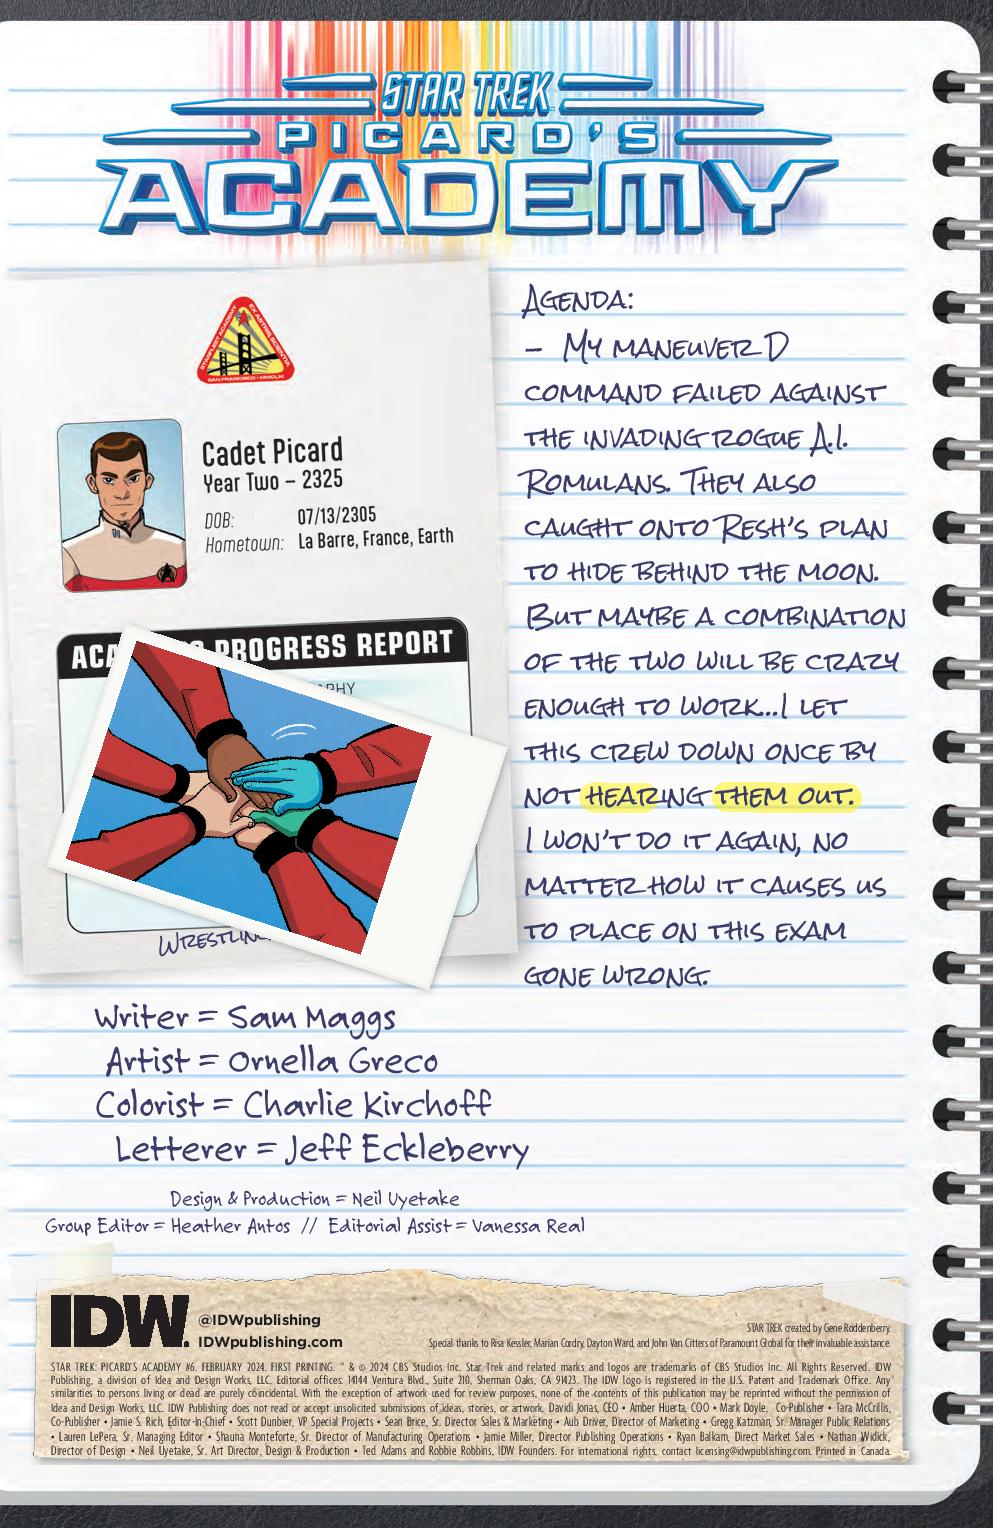 STAR TREK
PICARD'S
ACADEMY
STARFLEET ACADEMY
EX ASTRIS SCIENTIA
SAN FRANCISCO • MMCLXI
Cadet Picard
Year Two – 2325
DOB: 07/13/2305
Hometown: La Barre, France, Earth
PROGRESS REPORT
WRESTLING
AGENDA:
– MY MANEUVER D
COMMAND FAILED AGAINST
THE INVADING ROGUE A.I.
ROMULANS. THEY ALSO
CAUGHT ONTO RESH'S PLAN
TO HIDE BEHIND THE MOON.
BUT MAYBE A COMBINATION
OF THE TWO WILL BE CRAZY
ENOUGH TO WORK...I LET
THIS CREW DOWN ONCE BY
NOT HEARING THEM OUT.
I WON'T DO IT AGAIN, NO
MATTER HOW IT CAUSES US
TO PLACE ON THIS EXAM
GONE WRONG.
Writer = Sam Maggs
Artist = Ornella Greco
Colorist = Charlie Kirchoff
Letterer = Jeff Eckleberry
Design & Production = Neil Uyetake
Group Editor = Heather Antos // Editorial Assist = Vanessa Real
IDW.
@IDWpublishing
IDWpublishing.com
STAR TREK created by Gene Roddenberry.
Special thanks to Risa Kessler, Marian Cordry, Dayton Ward, and John Van Citters of Paramount Global for their invaluable assistance.
STAR TREK: PICARD'S ACADEMY #6. FEBRUARY 2024. FIRST PRINTING. ™ & © 2024 CBS Studios Inc. Star Trek and related marks and logos are trademarks of CBS Studios Inc. All Rights Reserved. IDW
Publishing, a division of Idea and Design Works, LLC. Editorial offices: 14144 Ventura Blvd., Suite 210, Sherman Oaks, CA 91423. The IDW logo is registered in the U.S. Patent and Trademark Office. Any
similarities to persons living or dead are purely coincidental. With the exception of artwork used for review purposes, none of the contents of this publication may be reprinted without the permission of
Idea and Design Works, LLC. IDW Publishing does not read or accept unsolicited submissions of ideas, stories, or artwork. Davidi Jonas, CEO • Amber Huerta, COO • Mark Doyle, Co-Publisher • Tara McCrillis,
Co-Publisher • Jamie S. Rich, Editor-In-Chief • Scott Dunbier, VP Special Projects • Sean Brice, Sr. Director Sales & Marketing • Aub Driver, Director of Marketing • Gregg Katzman, Sr. Manager Public Relations
• Lauren LePera, Sr. Managing Editor • Shauna Monteforte, Sr. Director of Manufacturing Operations • Jamie Miller, Director Publishing Operations • Ryan Balkam, Direct Market Sales • Nathan Widick,
Director of Design • Neil Uyetake, Sr. Art Director, Design & Production • Ted Adams and Robbie Robbins, IDW Founders. For international rights, contact licensing@idwpublishing.com. Printed in Canada.